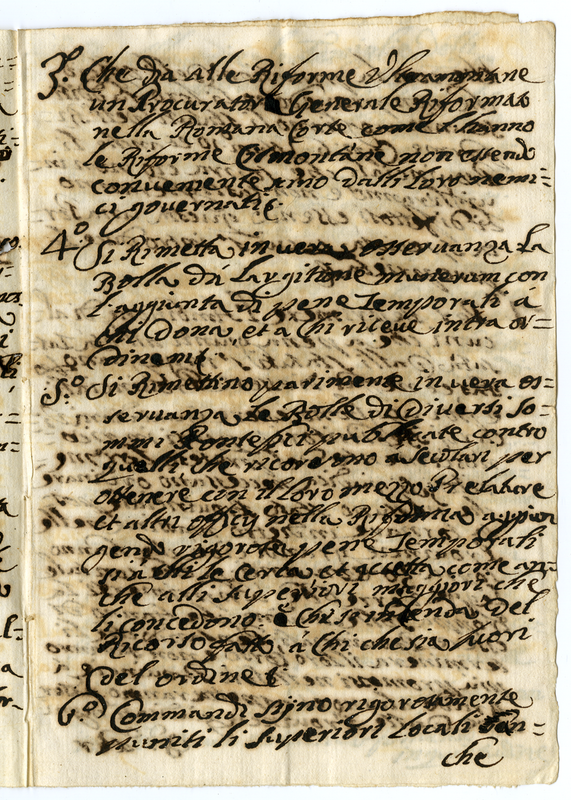 3.o Che dia alle Riforme Oltramontane
un Procurator Generale Riformato
nella Romana Corte come l'hanno
le Riforme Cismontane non essendo
conveniente sijno dalli loro nemi=
ci governati.
4.o Si Rimetta in vera osservanza La
Bolla di Largitione munerum con
l'aggiunta di pene Temporali à
chi dona, et a chi riceve intra or=
dinem
5.o Si Rimettino parimente in vera os=
servanza le Bolle di Diversi So=
mmi Pontefici publicate contro
quelli che ricorrono a seculari per
ottenere con il loro mezzo Prelature
et altri officij nella Riforma
pene Temporali
come an=
che alli superiori maggiori che
li concedono. del
Ricorso fatto à Chi che sia fuori
del ordine
6.o Commandi sijno rigorosamente
puniti li superiori Locali
che